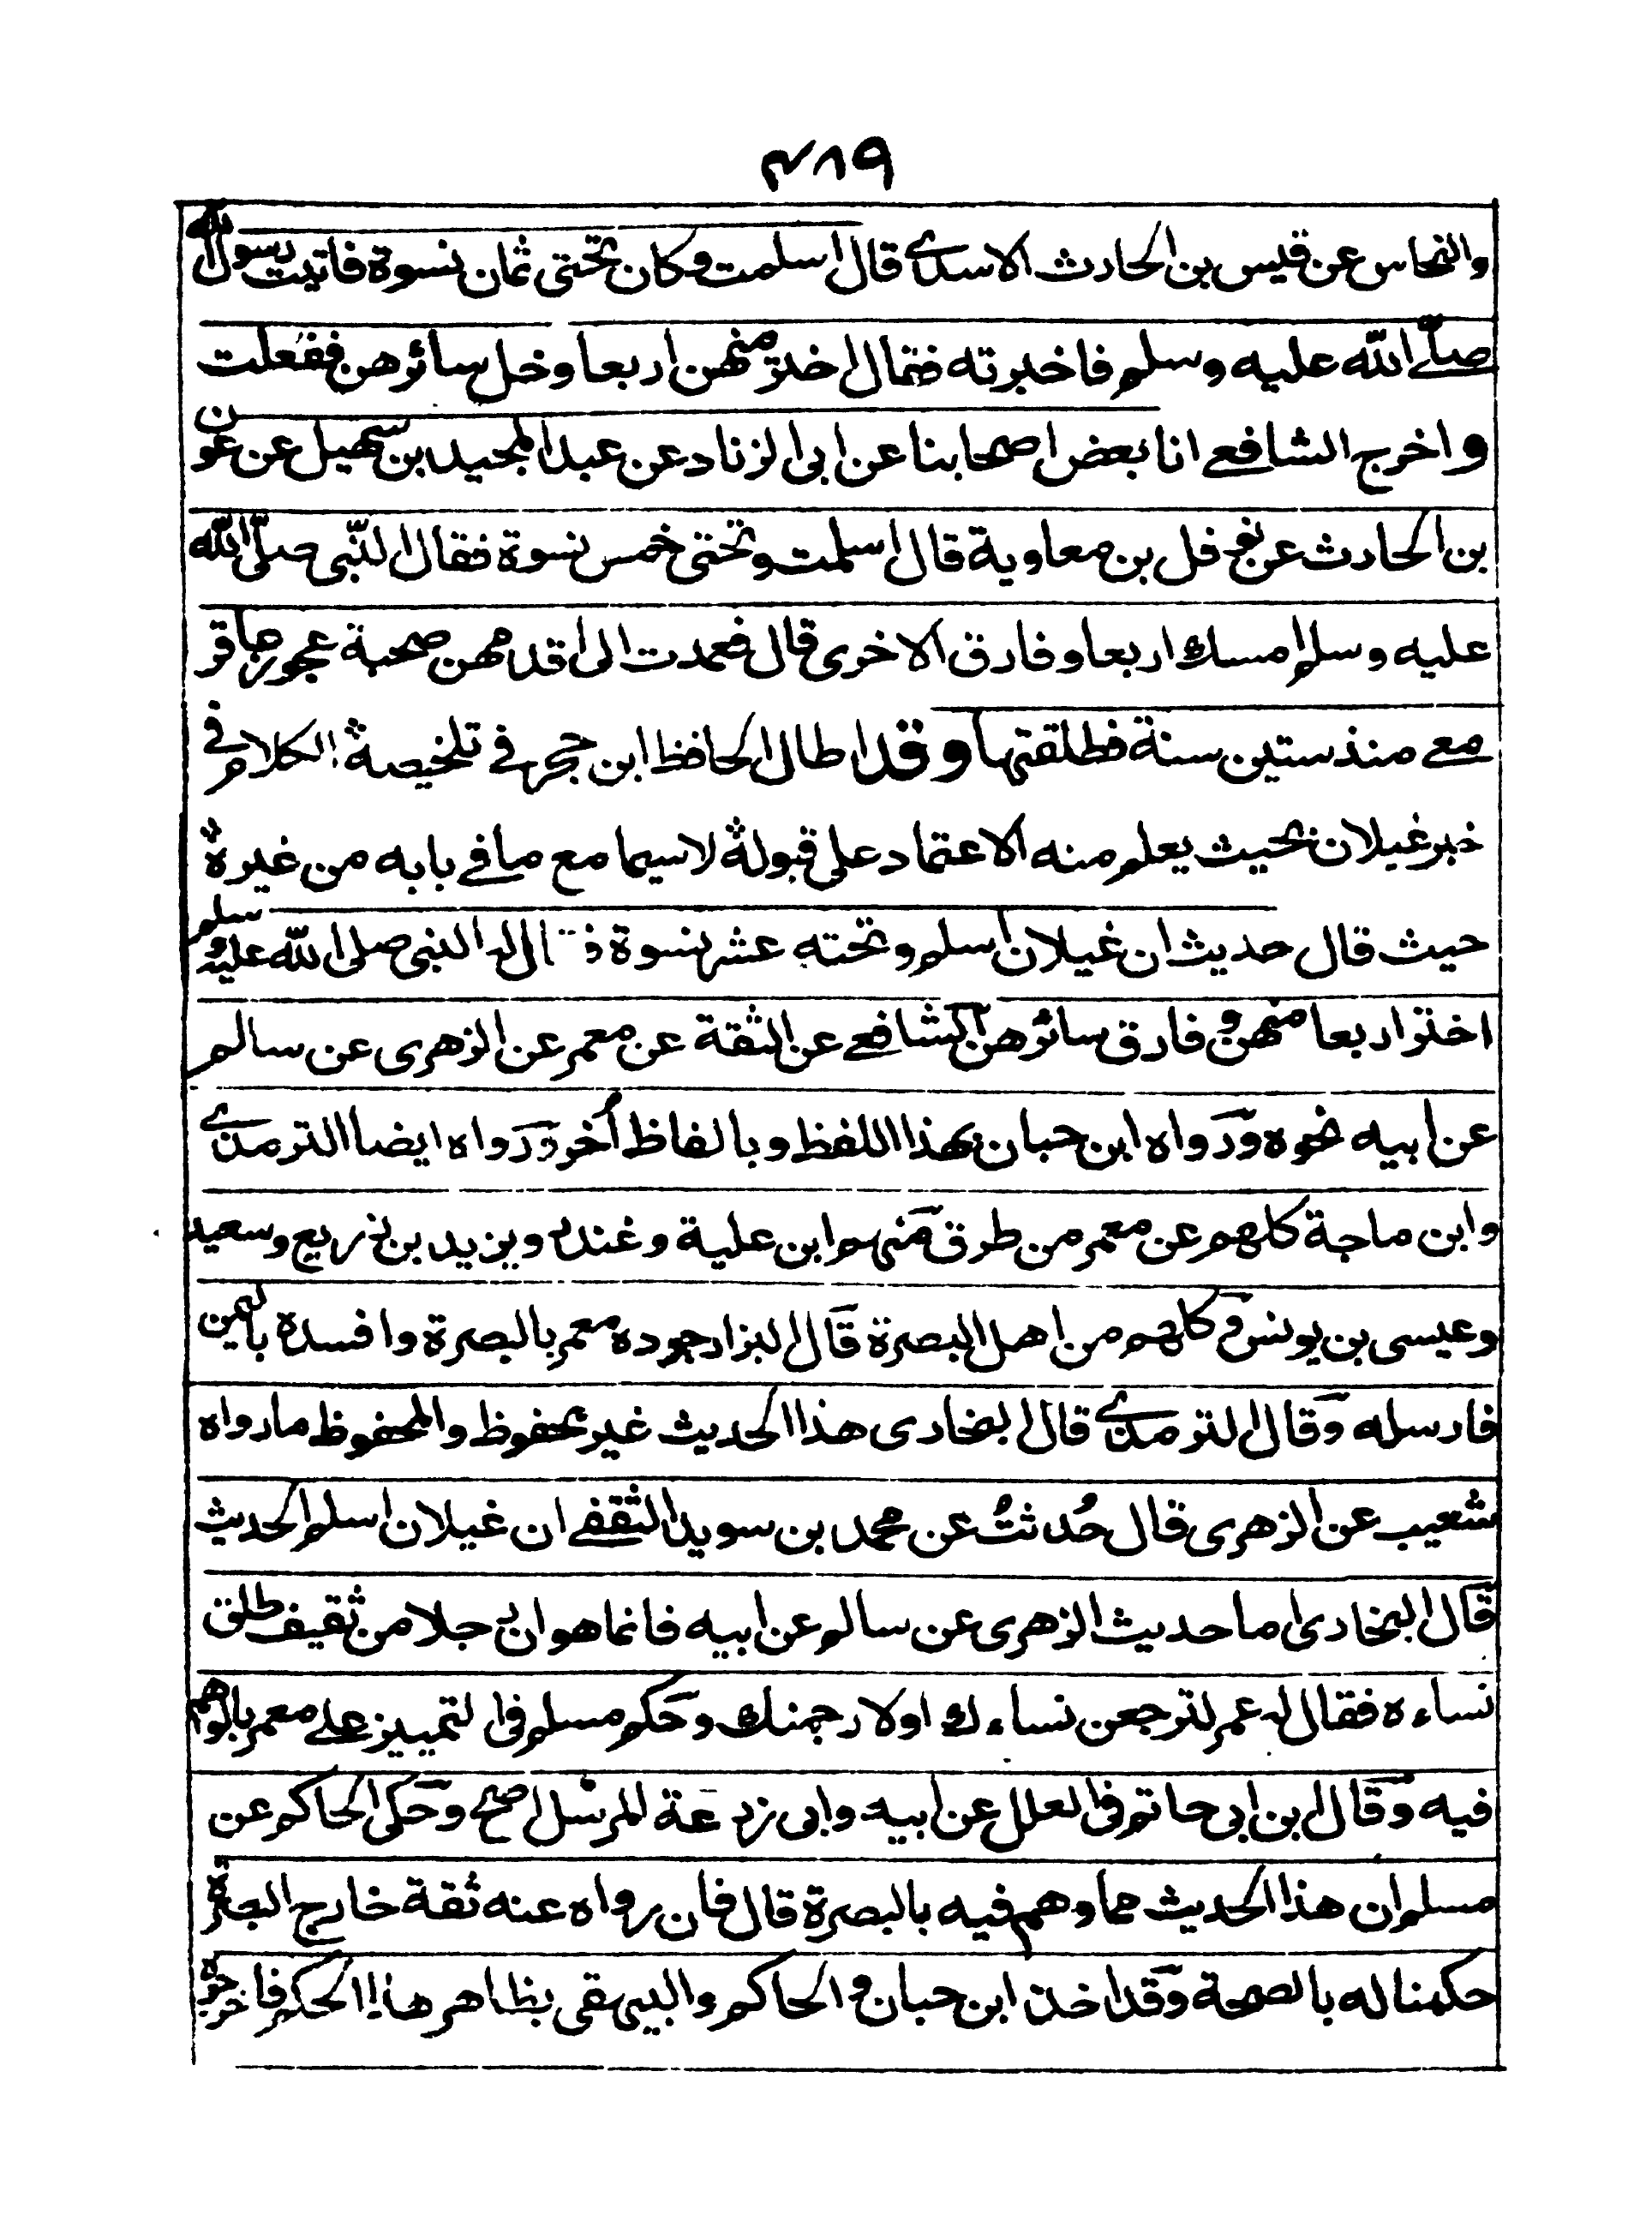 ٤٨٩
والنحاس عن قيس بن الحارث الاسدى قال اسلمت وكان تحتى ثمان نسوة فاتيت رسول الله
صلى الله عليه وسلم فاخبرته فقال اختر منهن اربعا وخل سائرهن ففعلت
واخرج الشافعى انا بعض اصحابنا عن ابى الزناد عن عبد المجيد بن سهيل عن عون
بن الحارث عن نوفل بن معاوية قال اسلمت وتحتى خمس نسوة فقال النبى صلى الله
عليه وسلم امسك اربعا وفارق الاخرى قال فعمدت الى اقدمهن صحبة عجوز عاقر
معى منذ ستين سنة فطلقتها وقد اطال الحافظ ابن حجر فى تلخيصه الكلام فى
خبر غيلان بحيث يعلم منه الاعتماد على قبوله لاسيما مع ما فى بابه من غيره
حيث قال حديث ان غيلان اسلم وتحته عشر نسوة فقال له النبى صلى الله عليه وسلم
اختر اربعا منهن وفارق سائرهن الشافعى عن الثقة عن معمر عن الزهرى عن سالم
عن ابيه نحوه ورواه ابن حبان بهذا اللفظ وبالفاظ أخر ورواه ايضا الترمذى
وابن ماجة كلهم عن معمر من طرق منهم ابن علية وغندر ويزيد بن زريع وسعيد
وعيسى بن يونس وكلهم من اهل البصرة قال البزار جوده معمر بالبصرة وافسده باليمن
فارسله وقال الترمذى قال البخارى هذا الحديث غير محفوظ والمحفوظ مارواه
شعيب عن الزهرى قال حُدثتُ عن محمد بن سويد الثقفى ان غيلان اسلم الحديث
قال البخارى اما حديث الزهرى عن سالم عن ابيه فانما هو ان رجلا من ثقيف طلق
نساءه فقال له عمر لترجعن نساءك اولارجمنك وحكم مسلم فى التمييز على معمر بالوهم
فيه وقال ابن ابى حاتم فى العلل عن ابيه وابى زرعة المرسل اصح وحكى الحاكم عن
مسلم ان هذا الحديث مما وهم فيه بالبصرة قال فان رواه عنه ثقة خارج البصرة
حكمنا له بالصحة وقد اخذ ابن حبان والحاكم والبيهقى بظاهر هذا الحكم فاخرجوه